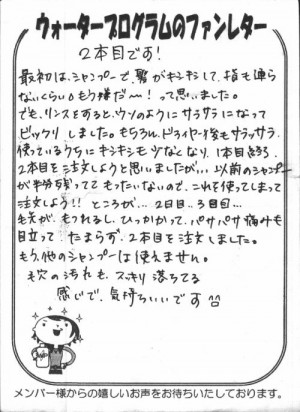 ウォータープログラムのファンレター
2本目です!
最初は、シャンプーで、髪がキシキシして、指も通ら
ないくらい。もう嫌だ〜!って思いました。
でも、リンスをすると、ウソのようにサラサラになって
ビックリしました。もちろん、ドライヤー後もサラッサラ。
使っているうちにキシキシもツなくなり、1本目
2本目を注文しようと思いましたが、、、以前のシャンプー
が半分残っててもったいないので、これを使ってしまって
注文しよう!!ところが、、、2日目、、3日目、、、
毛先が、もつれるし、ひっかかって、パサパサ痛みも
目立って、たまらず、2本目を注文しました。
もう、他のシャンプーは使えません。
毛穴の汚れも、スッキリ落ちてる
感じで、気持ちいいです
メンバー様からの嬉しいお声をお待ちいたしております。